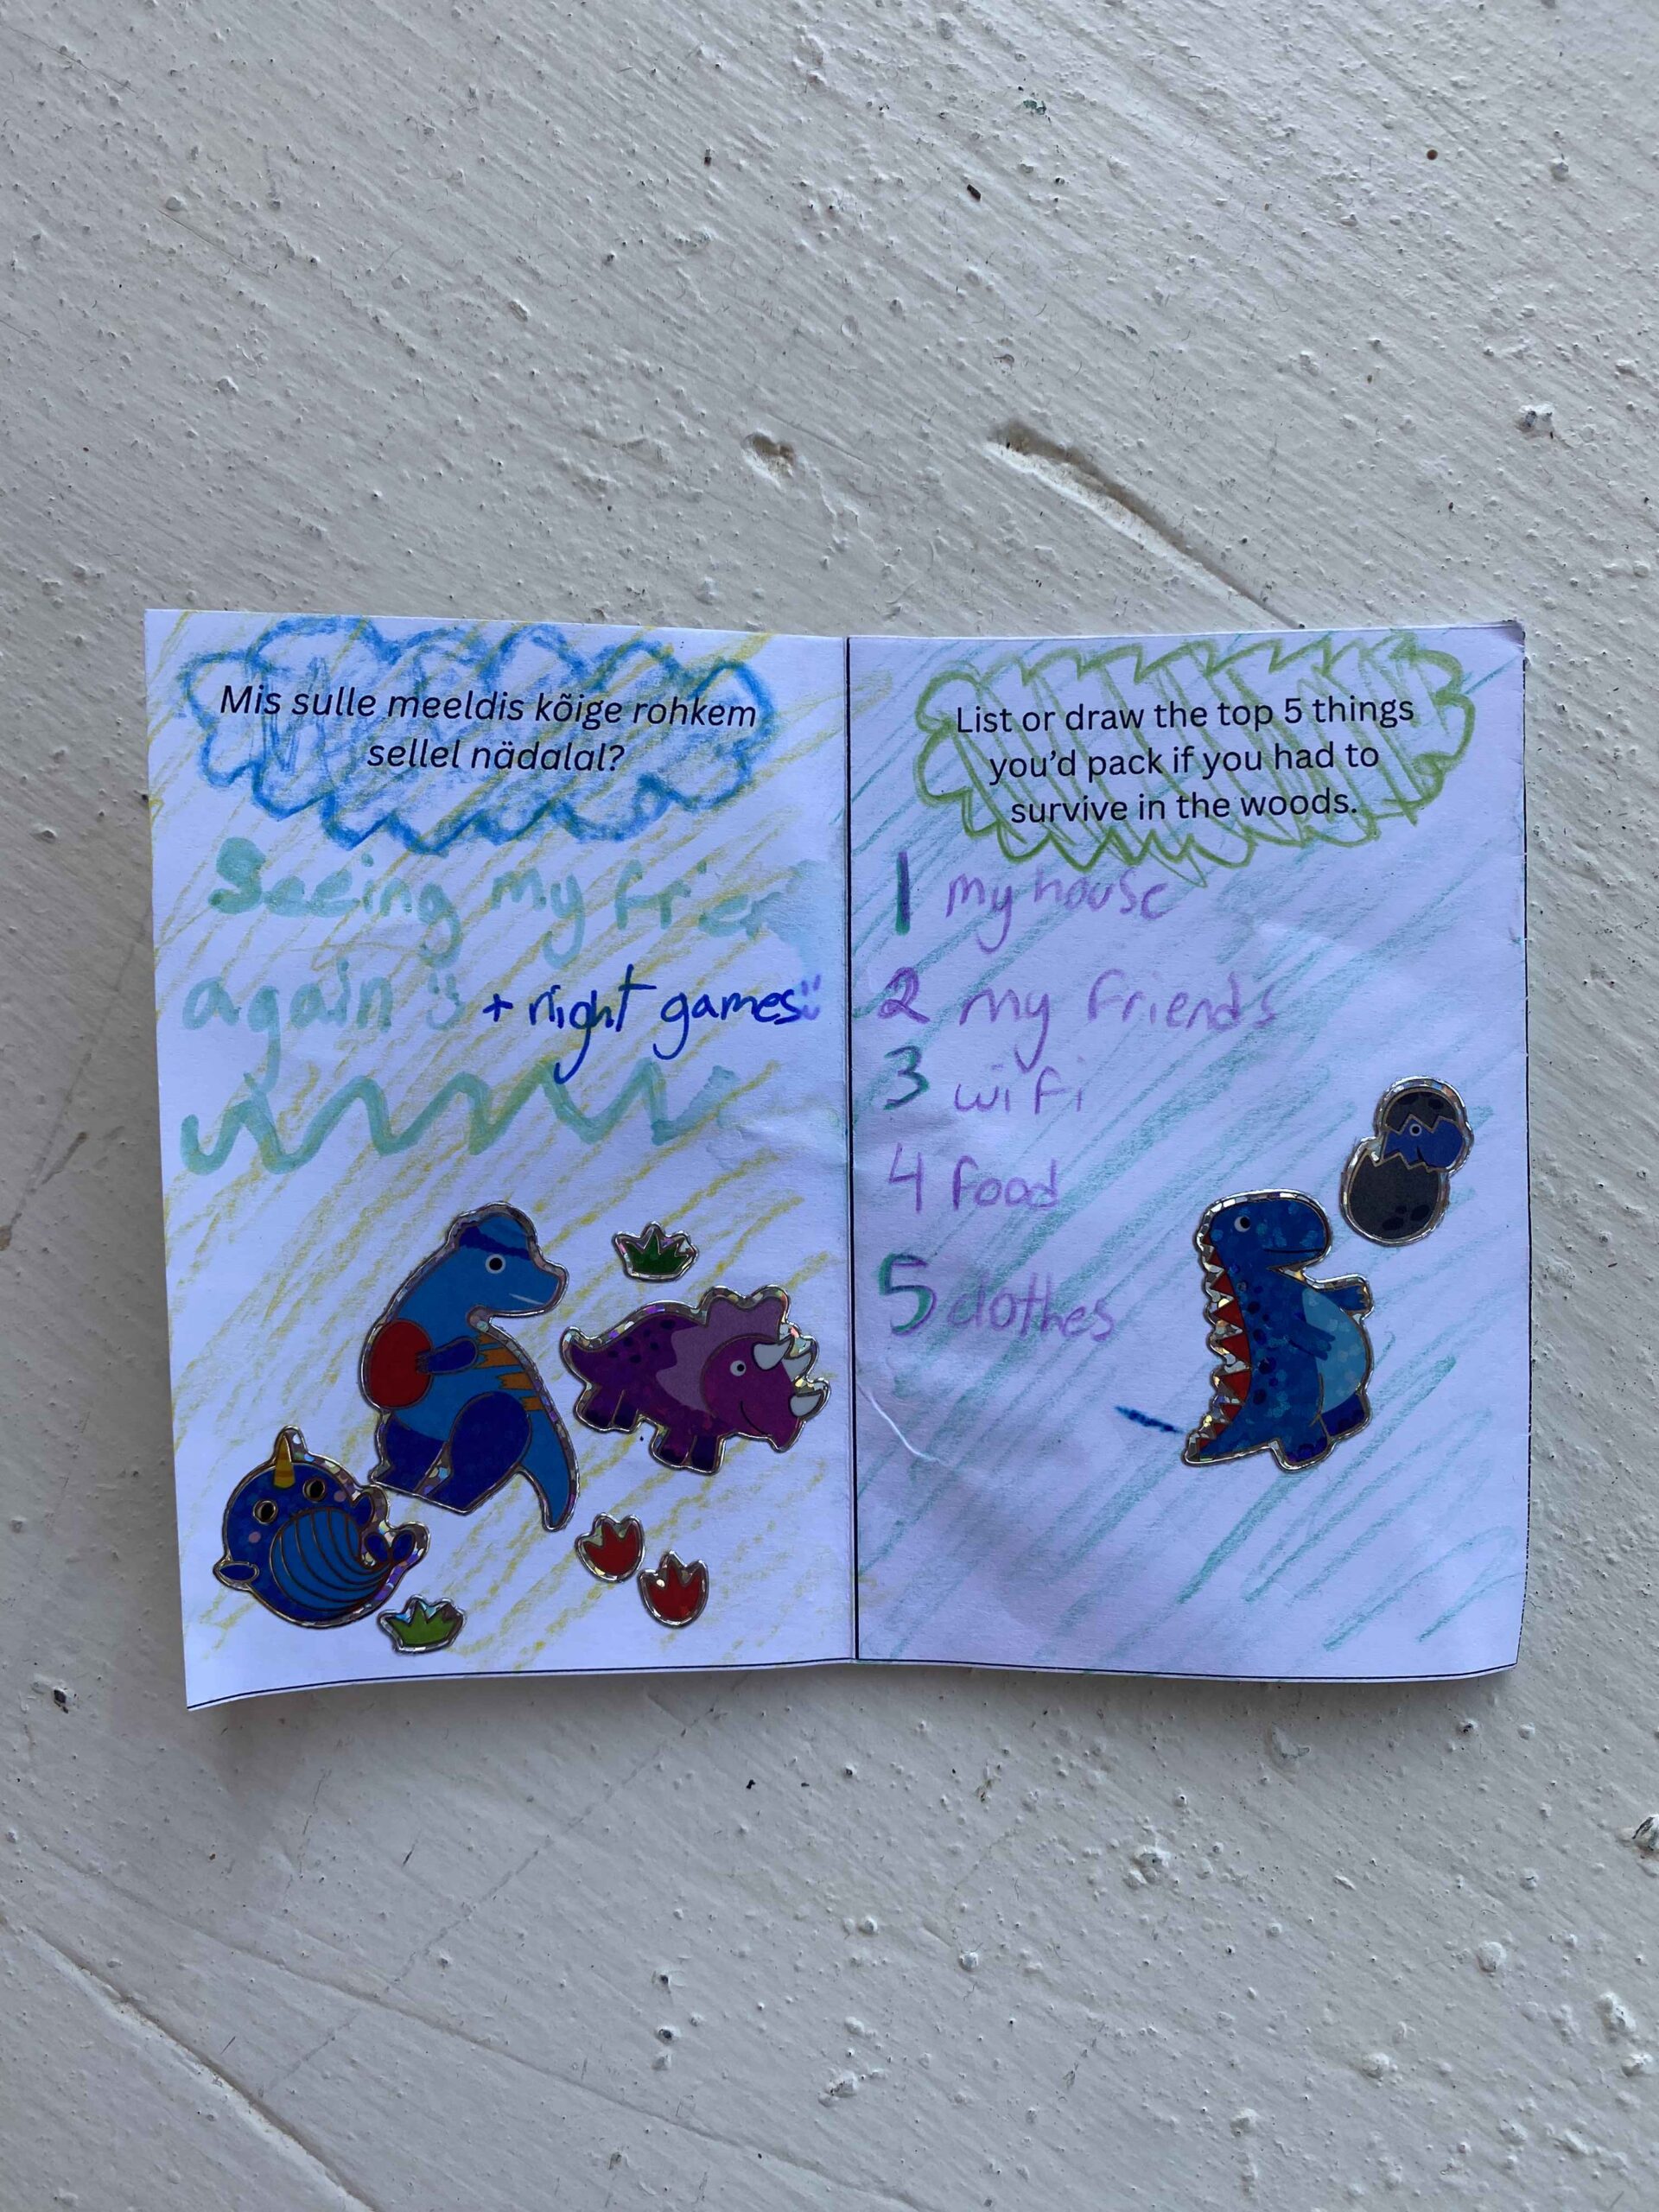 Mis sulle meeldis kõige rohkem
sellel nädalal?
Seeing my frien
again :) + night games :)
List or draw the top 5 things
you'd pack if you had to
survive in the woods.
1 my house
2 my friends
3 wifi
4 food
5 clothes